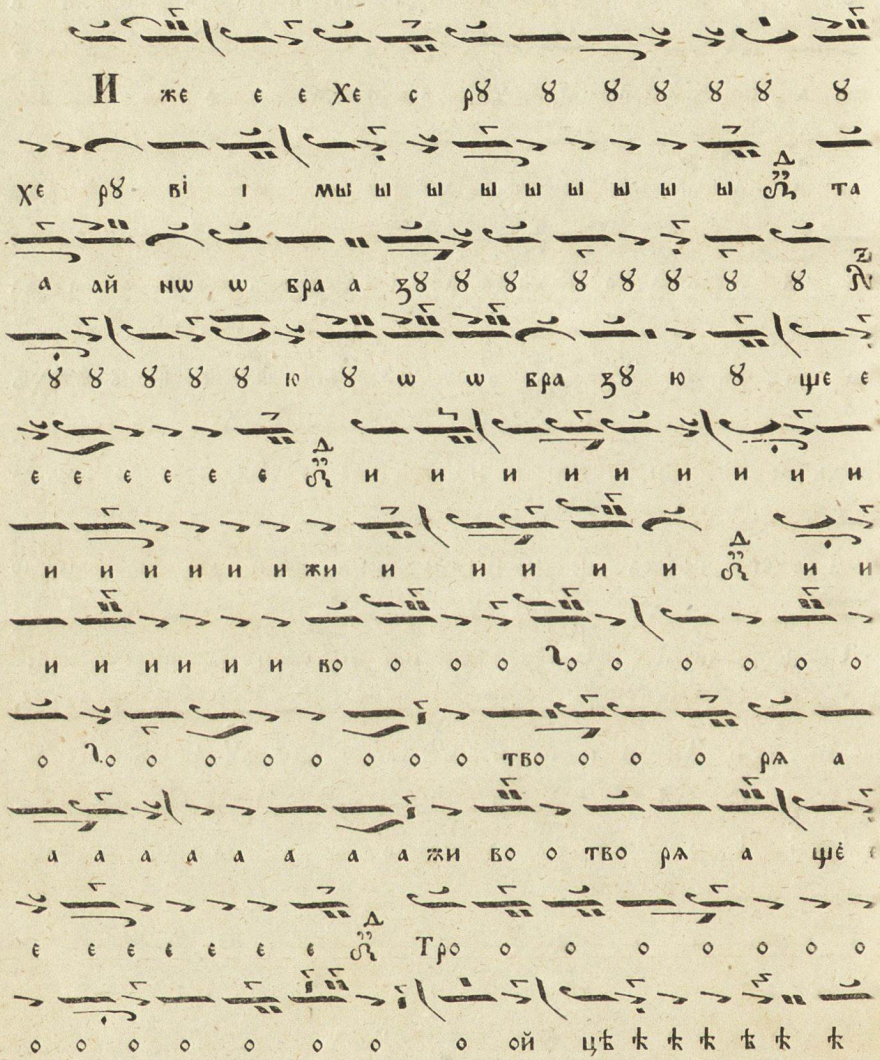 И же е е Хе с рꙋ ꙋ ꙋ ꙋ ꙋ ꙋ ꙋ
хе рꙋ ві і мы ы ы ы ы ы ы ы ы та
а ай нѡ ѡ бра а зꙋ ꙋ ꙋ ꙋ ꙋ ꙋ ꙋ ꙋ
ꙋ ꙋ ꙋ ꙋ ꙋ ю ꙋ ѡ ѡ бра зꙋ ю ꙋ ще е
е е е е е е и и и и и и и и и
и и и и и и жи и и и и и и и
и и и и и и во о о о о о о о о о
о о о о о о о о о тво о о о рѧ а
а а а а а а а а жи во о тво рѧ а щé е
е е е е е е е Тро о о о о о о
о о о о о о о о ой цѣ ѣ ѣ ѣ ѣ ѣ ѣ